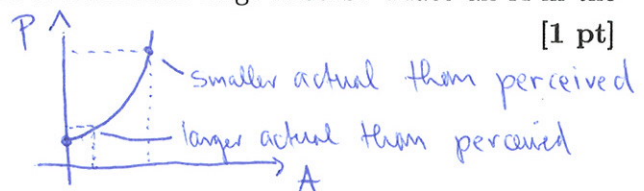 [1 pt]
P
smaller actual than perceived
larger actual than perceived
A